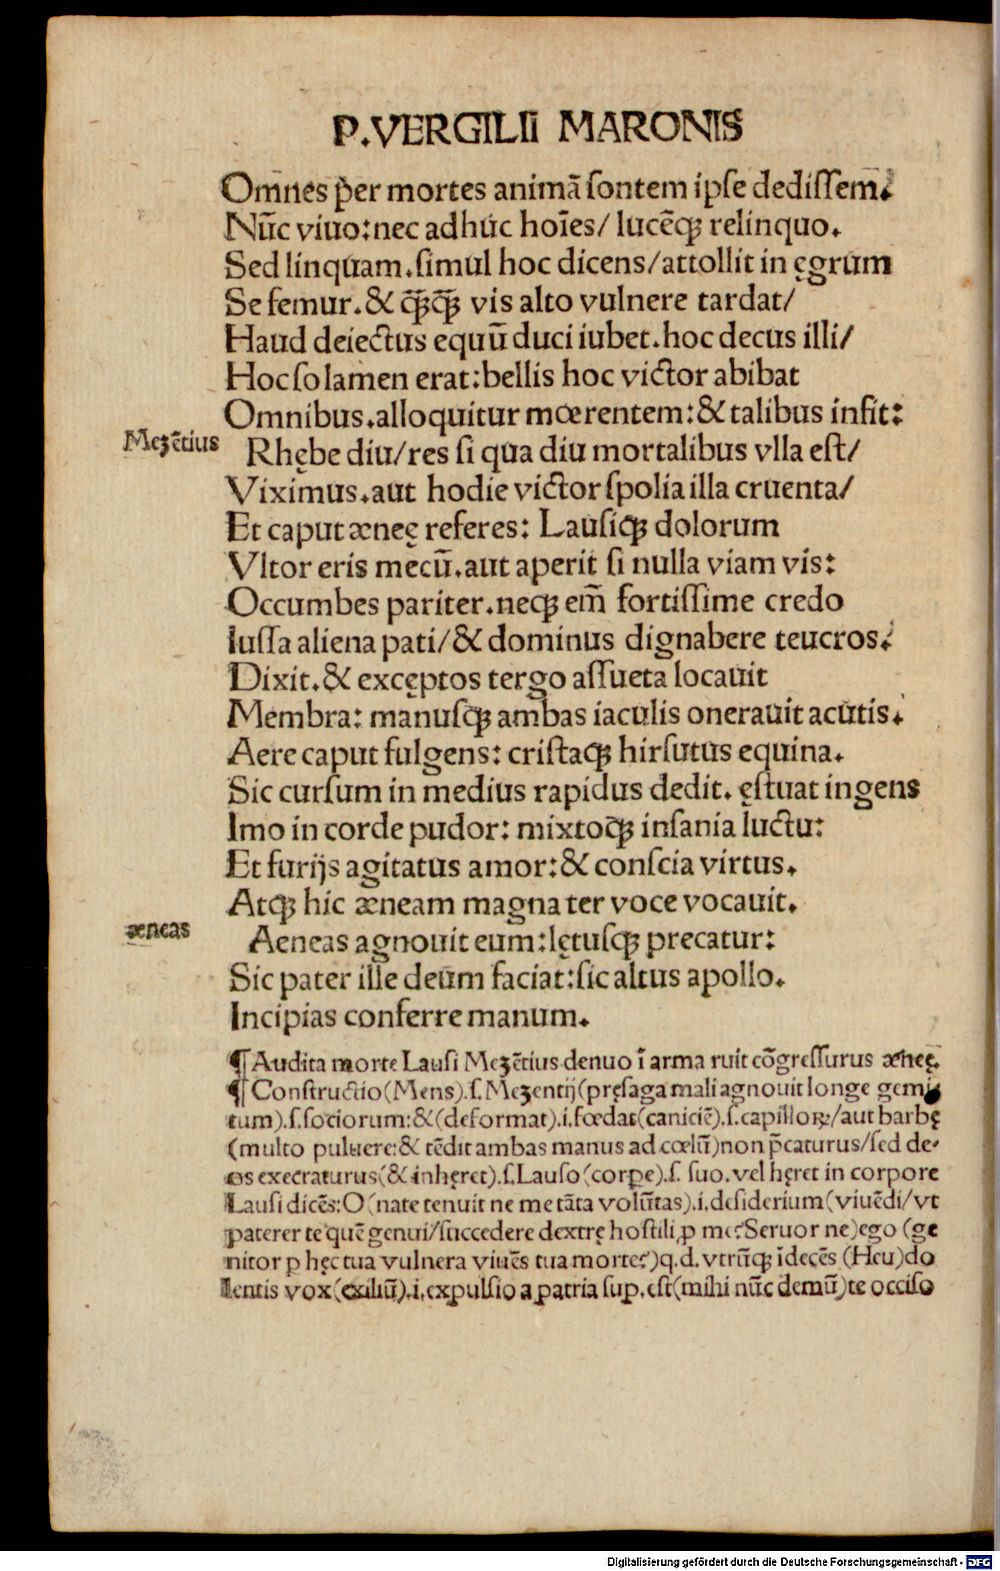 P. VERGILII MARONIS
Omnes per mortes animā sontem ipse dedissem.
Nūc viuo: nec adhuc hoīes/ lucēq; relinquo.
Sed linquam. simul hoc dicens/ attollit in ęgrum
Se femur. & q̄q̄ vis alto vulnere tardat/
Haud deiectus equū duci iubet. hoc decus illi/
Hoc solamen erat: bellis hoc victor abibat
Omnibus. alloquitur mœrentem: & talibus infit:
Mezētius
Rhębe diu/ res si qua diu mortalibus vlla est/
Viximus. aut hodie victor spolia illa cruenta/
Et caput æneę referes: Lausiq; dolorum
Vltor eris mecū. aut aperit si nulla viam vis:
Occumbes pariter. neq; em̄ fortissime credo
Iussa aliena pati/ & dominus dignabere teucros.
Dixit. & exceptos tergo assueta locauit
Membra: manusq; ambas iaculis onerauit acutis.
Aere caput fulgens: cristaq; hirsutus equina.
Sic cursum in medius rapidus dedit. ęstuat ingens
Imo in corde pudor: mixtoq; insania luctu:
Et furijs agitatus amor: & conscia virtus.
Atq; hic æneam magna ter voce vocauit.
æneas
Aeneas agnouit eum: lętusq; precatur:
Sic pater ille deûm faciat: sic altus apollo.
Incipias conferre manum.
¶ Audita morte Lausi Mezētius denuo ī arma ruit cōgressurus æneę.
¶ Constructio (Mens).s. Mezentij (pręsaga mali agnouit longe gemi
tum).s. sociorum: & (deformat).i. fœdat (caniciē).s. capilloꝝ/ aut barbę
(multo puluere: & tēdit ambas manus ad cœlū) non p̄caturus/ sed de-
os execraturus (& inhęret).s. Lauso (corpe).s. suo. vel hęret in corpore
Lausi dicēs: O (nate tenuit ne me tāta volūtas).i. desiderium (viuēdi/ vt
paterer te quē genui/ succedere dextrę hostili p me? Seruor ne) ego (ge
nitor p hęc tua vulnera viuēs tua morte?) q.d. vtrūq; īdecēs (Heu) do
lentis vox (exiliū).i. expulsio a patria sup. est (mihi nūc demū) te occiso
Digitalisierung gefördert durch die Deutsche Forschungsgemeinschaft - DFG